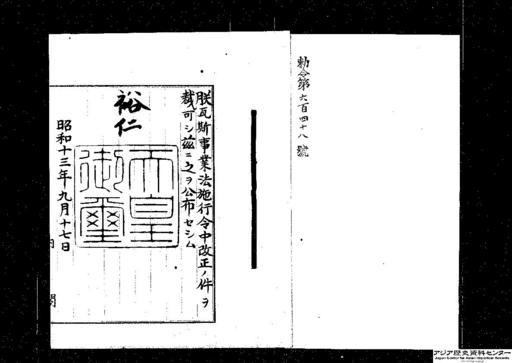 勅令第六百四十八號
朕瓦斯事業法施行令中改正ノ件ヲ
裁可シ茲ニ之ヲ公布セシム
裕仁
天皇御璽
昭和十三年九月十七日
内閣
アジア歴史資料センター
Japan Center for Asian Historical Records